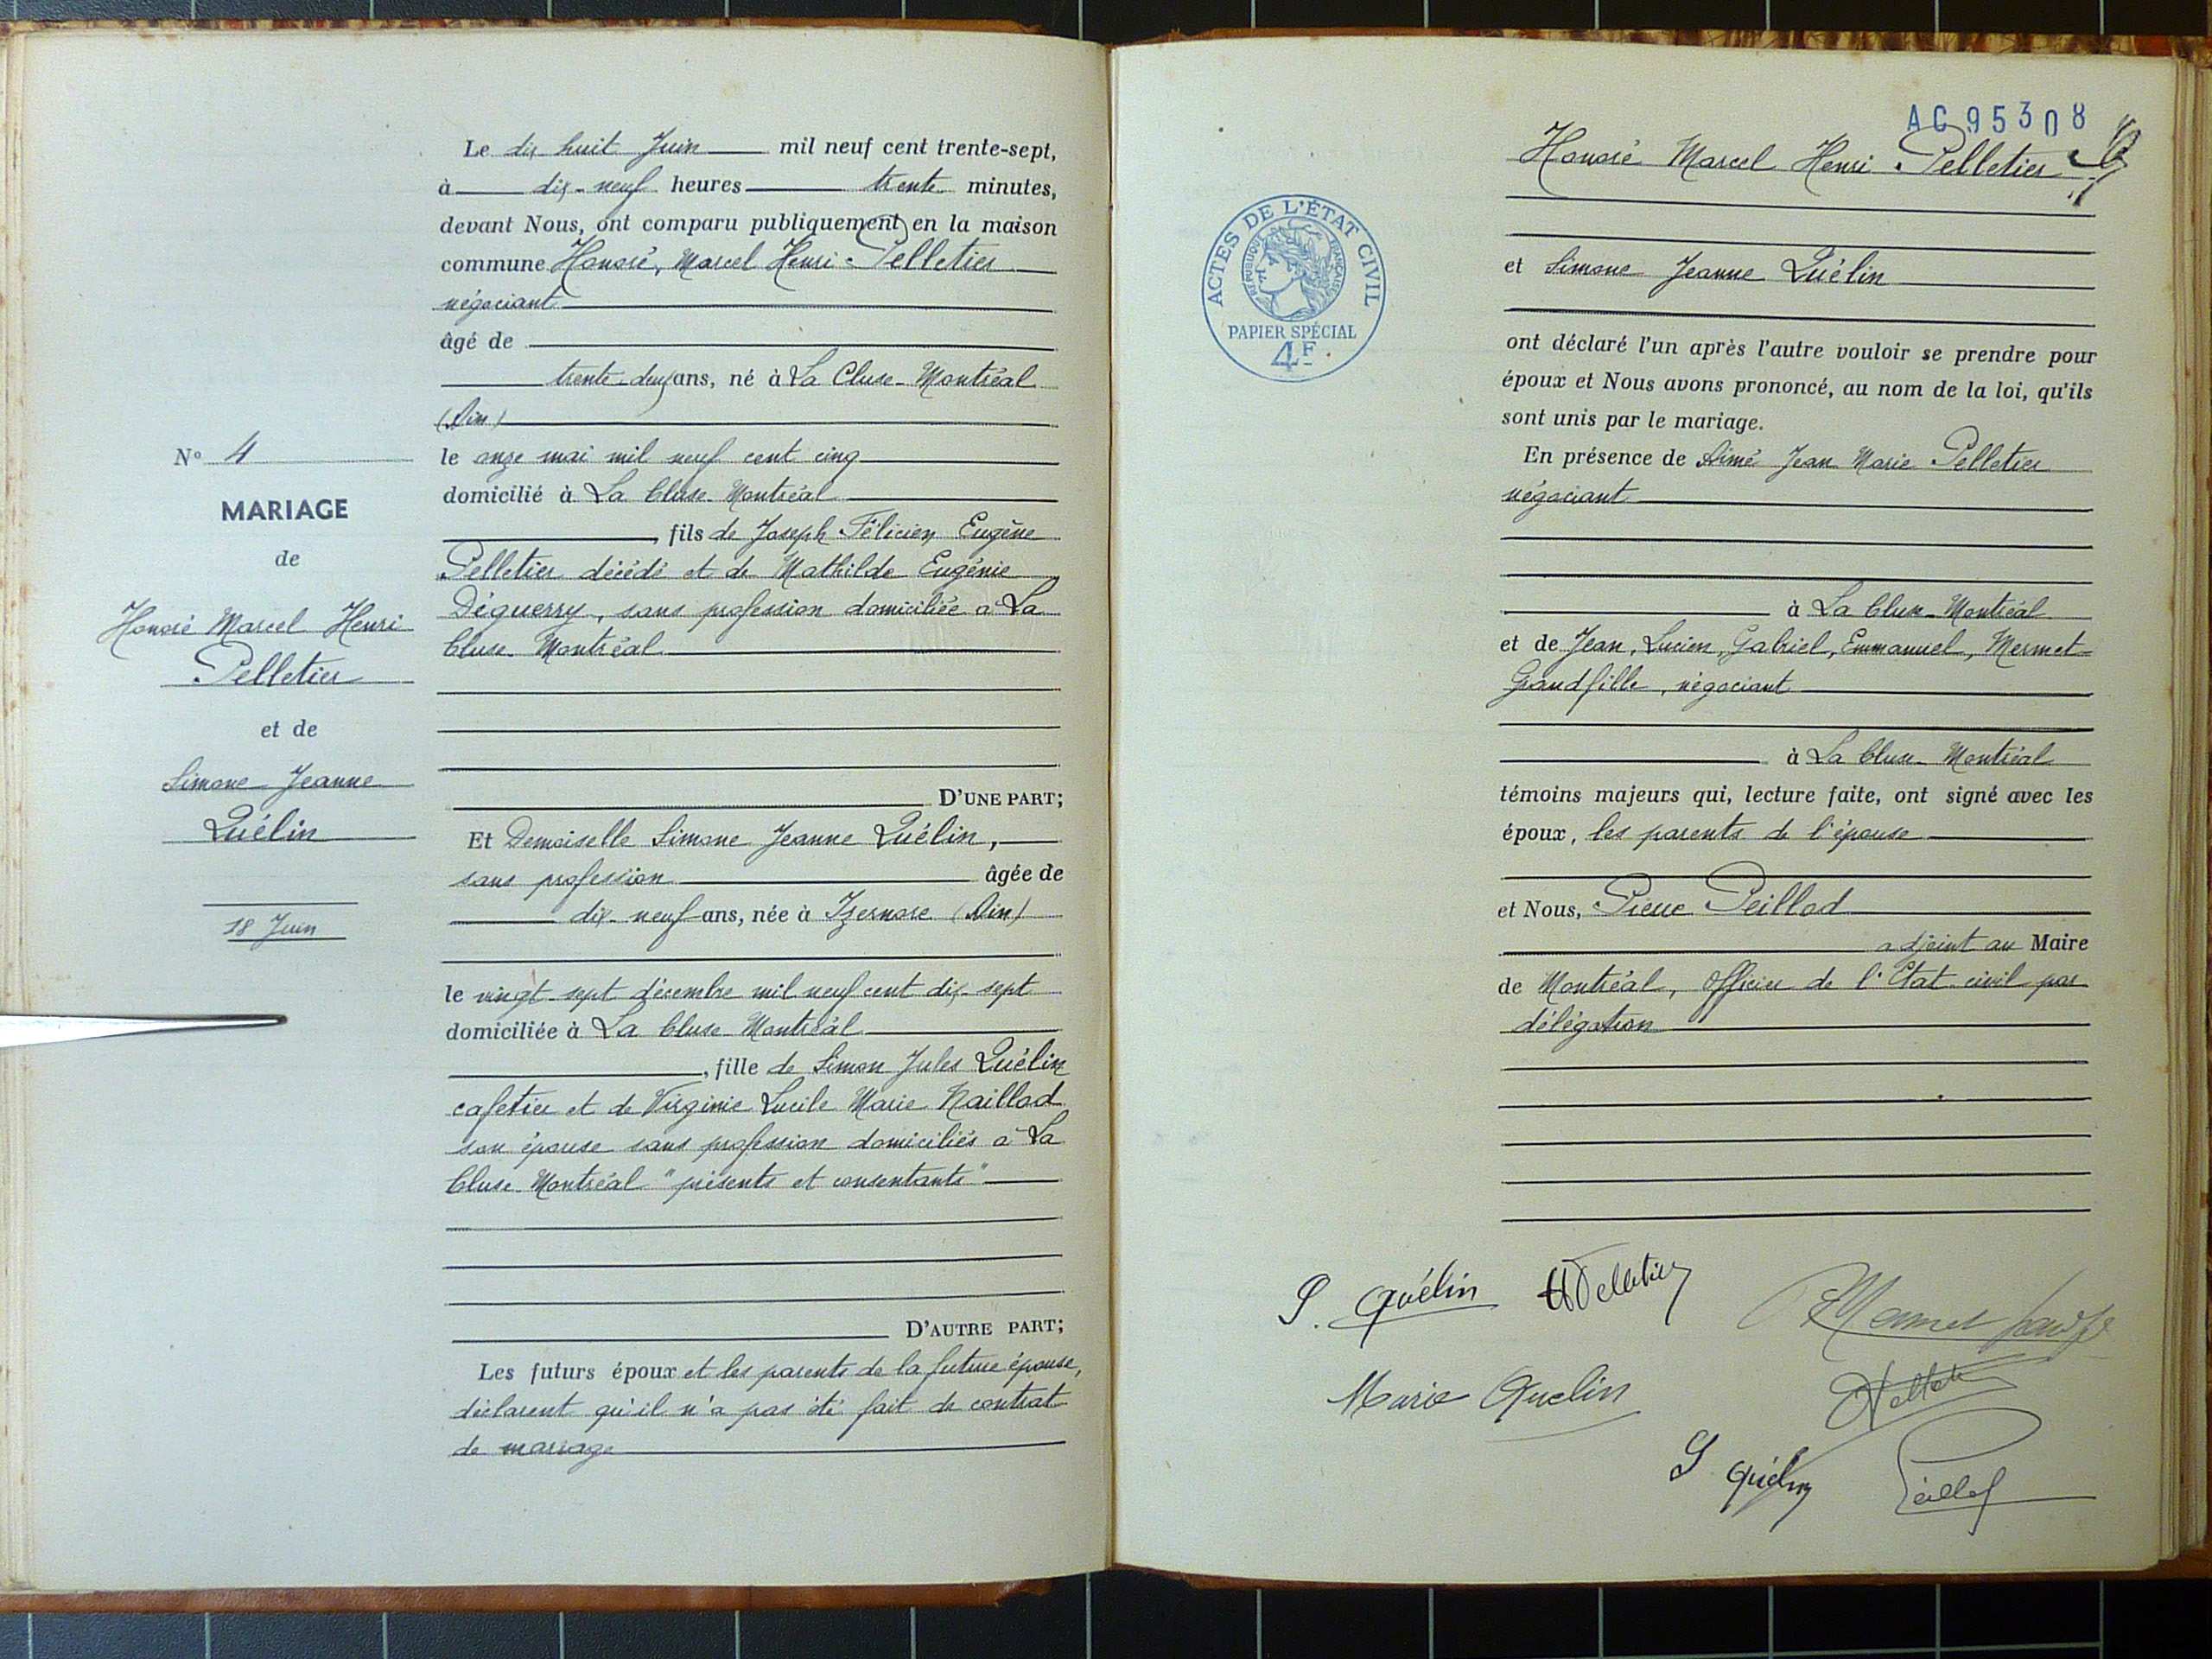 N° 4
MARIAGE
de
Honoré Marcel Henri
Pelletier
et de
Simone Jeanne
Quélin
18 Juin
Le dix huit Juin mil neuf cent trente-sept,
à dix-neuf heures trente minutes,
devant Nous, ont comparu publiquement en la maison
commune Honoré, Marcel Henri Pelletier
négociant
âgé de
trente-deux ans, né à La Cluse-Montréal
(Ain)
le onze mai mil neuf cent cinq
domicilié à La Cluse-Montréal
, fils de Joseph Félicien Eugène
Pelletier décédé et de Mathilde Eugénie
Déguerry, sans profession domiciliée à La
Cluse-Montréal
D'UNE PART;
Et Demoiselle Simone Jeanne Quélin,
sans profession âgée de
dix-neuf ans, née à Izernore (Ain)
le vingt-sept décembre mil neuf cent dix-sept
domiciliée à La Cluse-Montréal
, fille de Simon Jules Quélin
cafetier et de Virginie Lucile Marie Naillod
son épouse sans profession domiciliés à La
Cluse-Montréal "présents et consentants"
D'AUTRE PART;
Les futurs époux et les parents de la future épouse,
déclarent qu'il n'a pas été fait de contrat
de mariage
AC95308
Honoré Marcel Henri Pelletier
ACTES DE L'ÉTAT CIVIL
RÉPUBLIQUE FRANÇAISE
PAPIER SPÉCIAL
4F
et Simone Jeanne Quélin
ont déclaré l'un après l'autre vouloir se prendre pour
époux et Nous avons prononcé, au nom de la loi, qu'ils
sont unis par le mariage.
En présence de Aimé Jean Marie Pelletier
négociant
à La Cluse-Montréal
et de Jean, Lucien, Gabriel, Emmanuel, Mermet-
Grandfille, négociant
à La Cluse-Montréal
témoins majeurs qui, lecture faite, ont signé avec les
époux, les parents de l'épouse
et Nous, Pierre Peillod
adjoint au Maire
de Montréal, Officier de l'Etat-civil par
délégation
S. Quélin HPelletier
Marie Quelin
S Quélin Peillod